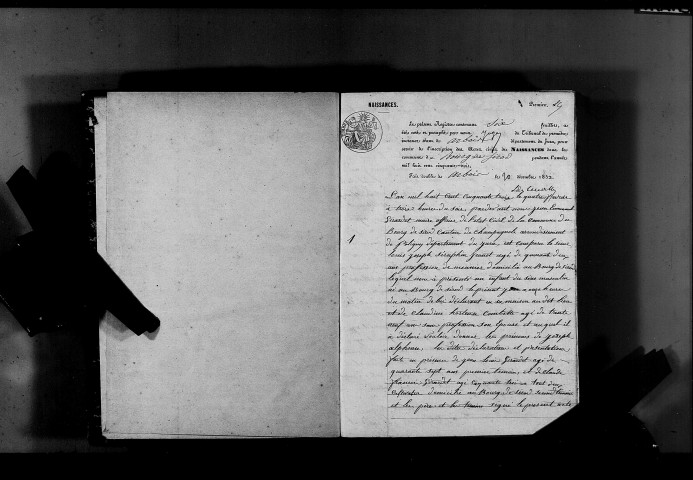 NAISSANCES.
Premier
Le présent Registre contenant Six feuillets, a
été coté et paraphé par nous Juge du Tribunal de première
instance séant de Arbois département du Jura, pour
servir à l'inscription des Actes civils de NAISSANCES dans la
commune de Bourg de Sirod pendant l'année
mil huit cent cinquante-trois.
Fait double à Arbois le 20 décembre 1852
L'an mil huit cent cinquante trois le quatre février
à trois heures du soir, pardevant nous
Girardet maire officier de l'état civil de la commune de
Bourg de Sirod Canton de Champagnole arrondissement
de Poligny département du Jura, est comparu le sieur
Louis Joseph Séraphin agé de quarante deux
ans profession de meunier domicilié au Bourg de Sirod
lequel nous a présenté un enfant du sexe masculin
né au Bourg de Sirod le présent jour a onze heure
du matin de lui déclarant en sa maison au dit lieu
et de Claudine Combette agé de trente
neuf ans sans profession son épouse et auquel il
a déclaré vouloir donner les prénoms de Joseph
alphonse, les dite déclaration et présentation
fait en présence de Girardet agé de
quarante sept ans premier témoin, et de Claude
françois Girardet agé cinquante trois ans tout deux
cultivateur domicilié au Bourg de Sirod
et les père et les témoin signé le présent acte
1